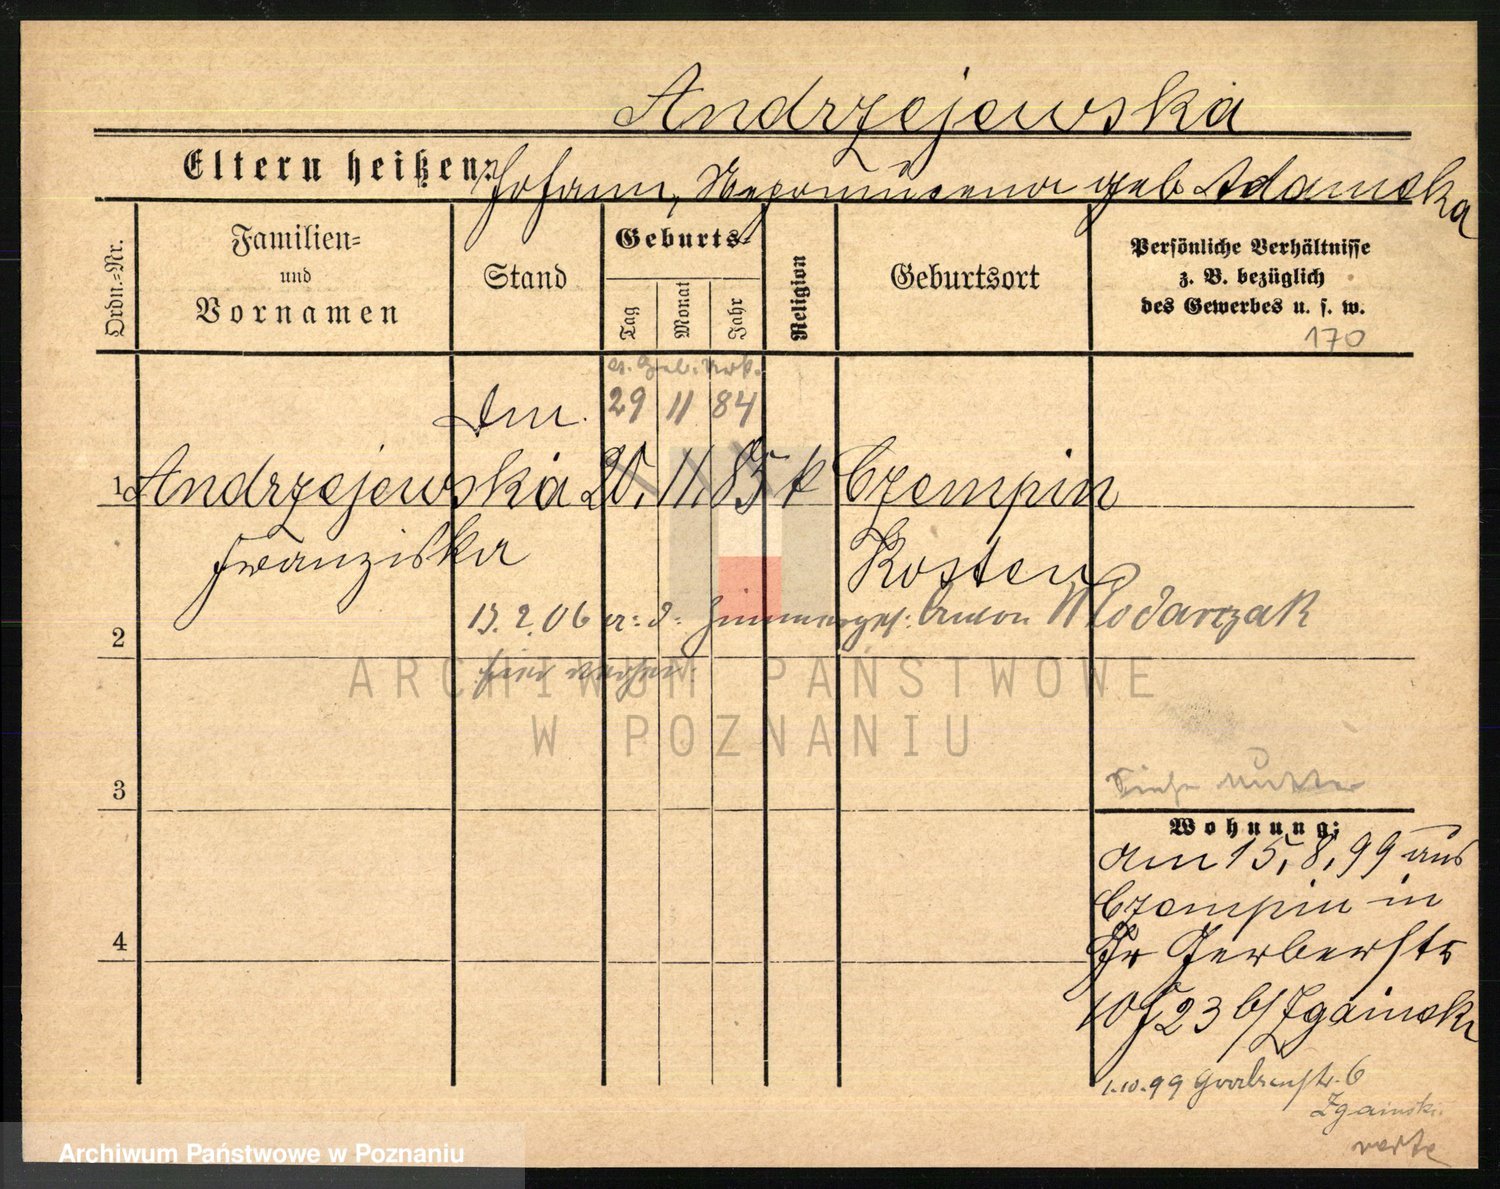 Andrzejewska
Eltern heißen: Johann, Nepomucena geb Adamska
Ordn.-Nr.
Familien-
und
Vornamen
Stand
Geburts-
Tag
Monat
Jahr
Religion
Geburtsort
Persönliche Verhältnisse
z. B. bezüglich
des Gewerbes u. s. w.
170
Geb. Urk.
29 11 84
1 Andrzejewska 20. 11. 85 k Czempin
Franziska Kosten
2 13.2.06 a. d. Zimmerges. Anton Wlodarczak
hier
ARCHIWUM PAŃSTWOWE
W POZNANIU
3
Siehe Mutter
Wohnung:
am 15.8.99 aus
Czempin in
Gerberstr
4
10 23 b/ Zgainski
1.10.99 Grabenstr. 6
Zgainski
verte
Archiwum Państwowe w Poznaniu